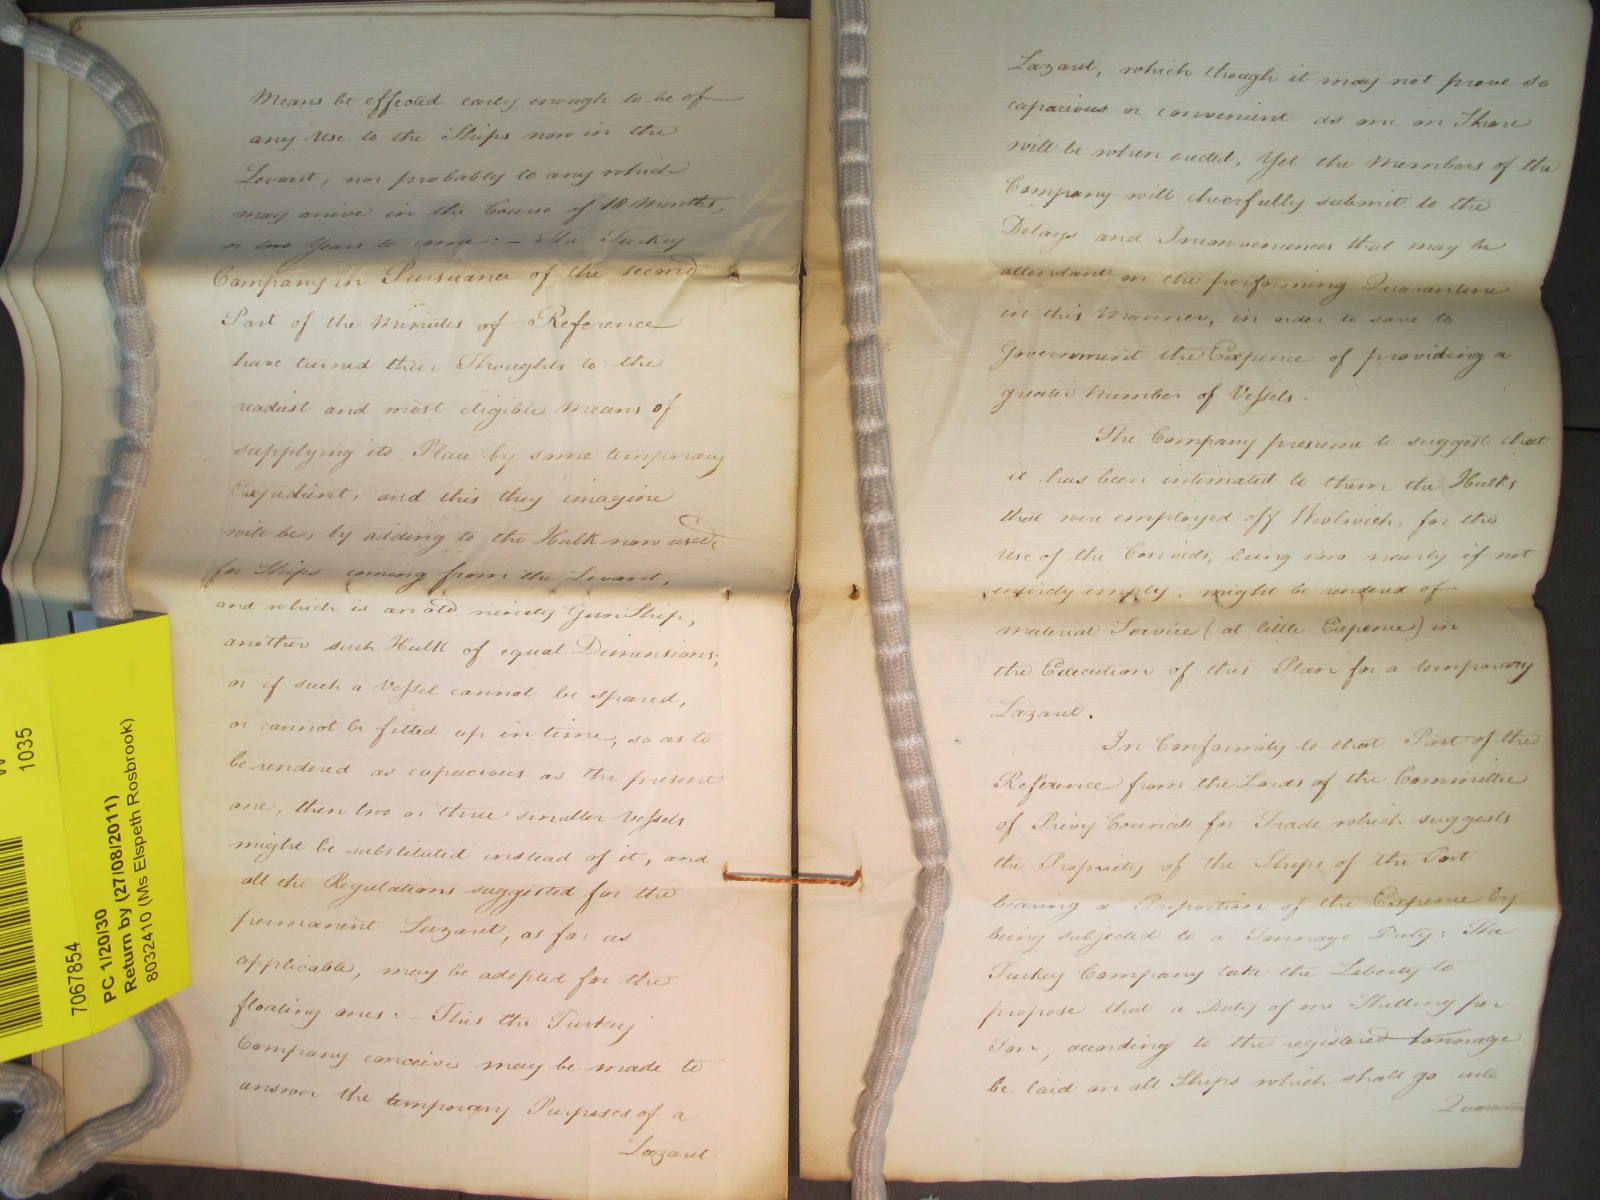 Means be effected early enough to be of
any Use to the Ships now in the
Levant, nor probably to any which
may arrive in the Course of 18 Months,
or two Years to come: – The Turkey
Company in Pursuance of the second
Part of the Minutes of Reference
have turned their Thoughts to the
readiest and most eligible Means of
supplying its Place by some temporary
Expedient, and this they imagine
will be, by adding to the Hulk now used
for Ships coming from the Levant,
and which is an old ninety Gun Ship,
another such Hulk of equal Dimensions;
or if such a Vessel cannot be spared,
or cannot be fitted up in time, so as to
be rendered as capacious as the present
one, then two or three smaller Vessels
might be substituted instead of it, and
all the Regulations suggested for the
permanent Lazaret, as far as
applicable, may be adopted for the
floating ones: – This the Turkey
Company conceive may be made to
answer the temporary Purposes of a
Lazaret
Lazaret, which though it may not prove so
capacious or convenient as one on Shore
will be when erected, Yet the Members of the
Company will chearfully submit to the
Delays and Inconveniences that may be
attendant on the performing Quarantine
in this Manner, in order to save to
Government the Expence of providing a
greater Number of Vessels.
The Company presume to suggest that
it has been intimated to them the Hulks
that were employed off Woolwich, for the
Use of the Convicts, being now nearly if not
entirely empty, might be rendered of
material Service (at little Expence) in
the Execution of this Plan for a temporary
Lazaret.
In Conformity to that Part of the
Reference from the Lords of the Committee
of Privy Council for Trade which suggests
the Propriety of the Ships of the Port
bearing a Proportion of the Expence by
being subjected to a Tonnage Duty: The
Turkey Company take the Liberty to
propose that a Duty of one Shilling per
Ton, according to the registered tonnage
be laid on all Ships which shall go into
Quarantine
1035
7067854
PC 1/20/30
Return by (27/08/2011)
8032410 (Ms Elspeth Rosbrook)